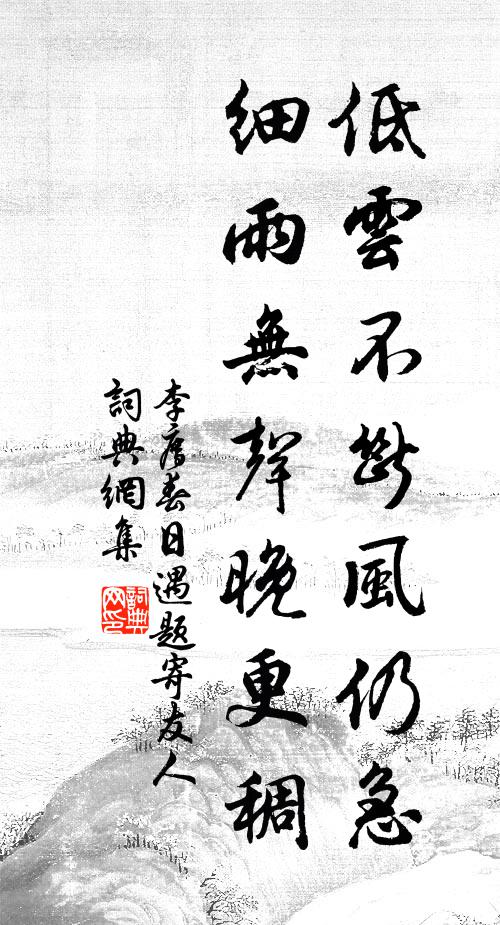 低雲不斷風仍急
細雨無聲晚更稠
李廌春日遇題寄友人
詞典網集
詞典
网印